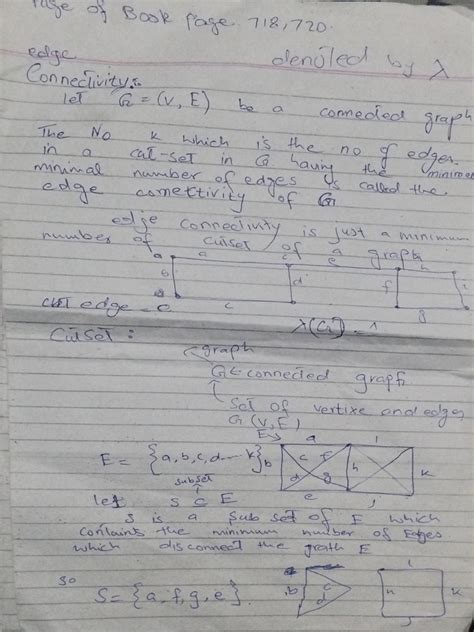 Page of Book Page. 718,720.
edge denoted by λ
Connectivity:
let G = (V, E) be a connected graph
The No k which is the no of edges
in a cut-set in G having the
minimal number of edges is called the
edge conettivity of G
edje connectivity is just a minimum
number of cutset of a graph
a a c e
b d f i
c g
cut edge = e λ(G) = 1
Cutset:
graph
G ← connected graph
Set of vertixe and edges
G(V,E)
E = {a,b,c,d--- k}
E→ a i
b c f h k
d g
e j
subset
let S ⊆ E
S is a sub set of E which
contains the minimum number of Edges
which disconnect the grath E
so
S = {a,f,g,e}
b c d
h k
j